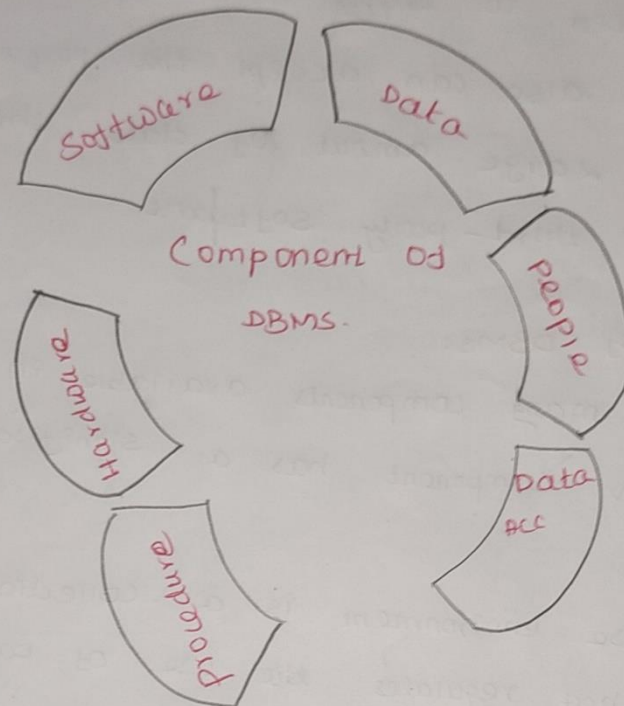 Software
Data
Component of
DBMS.
People
Hardware
Data
Acc
Procedure